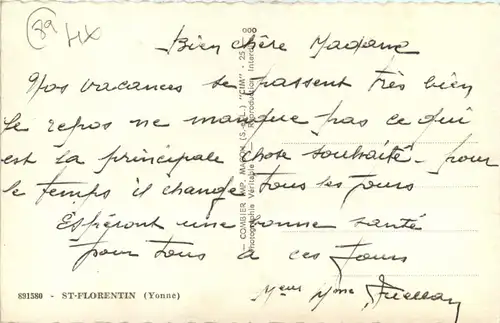 89
Bien chère Madame
Nos vacances se passent très bien
le repos ne manque pas ce qui
est la principale chose souhaité - pour
le temps il change tous les jours
Espéront une bonne santé
pour tous a ces jours
Mme
891580 - ST-FLORENTIN (Yonne)
— COMBIER IMP. MACON (S.-&-L.) "CIM" -
Photographie Véritable - Reproduction Interdite